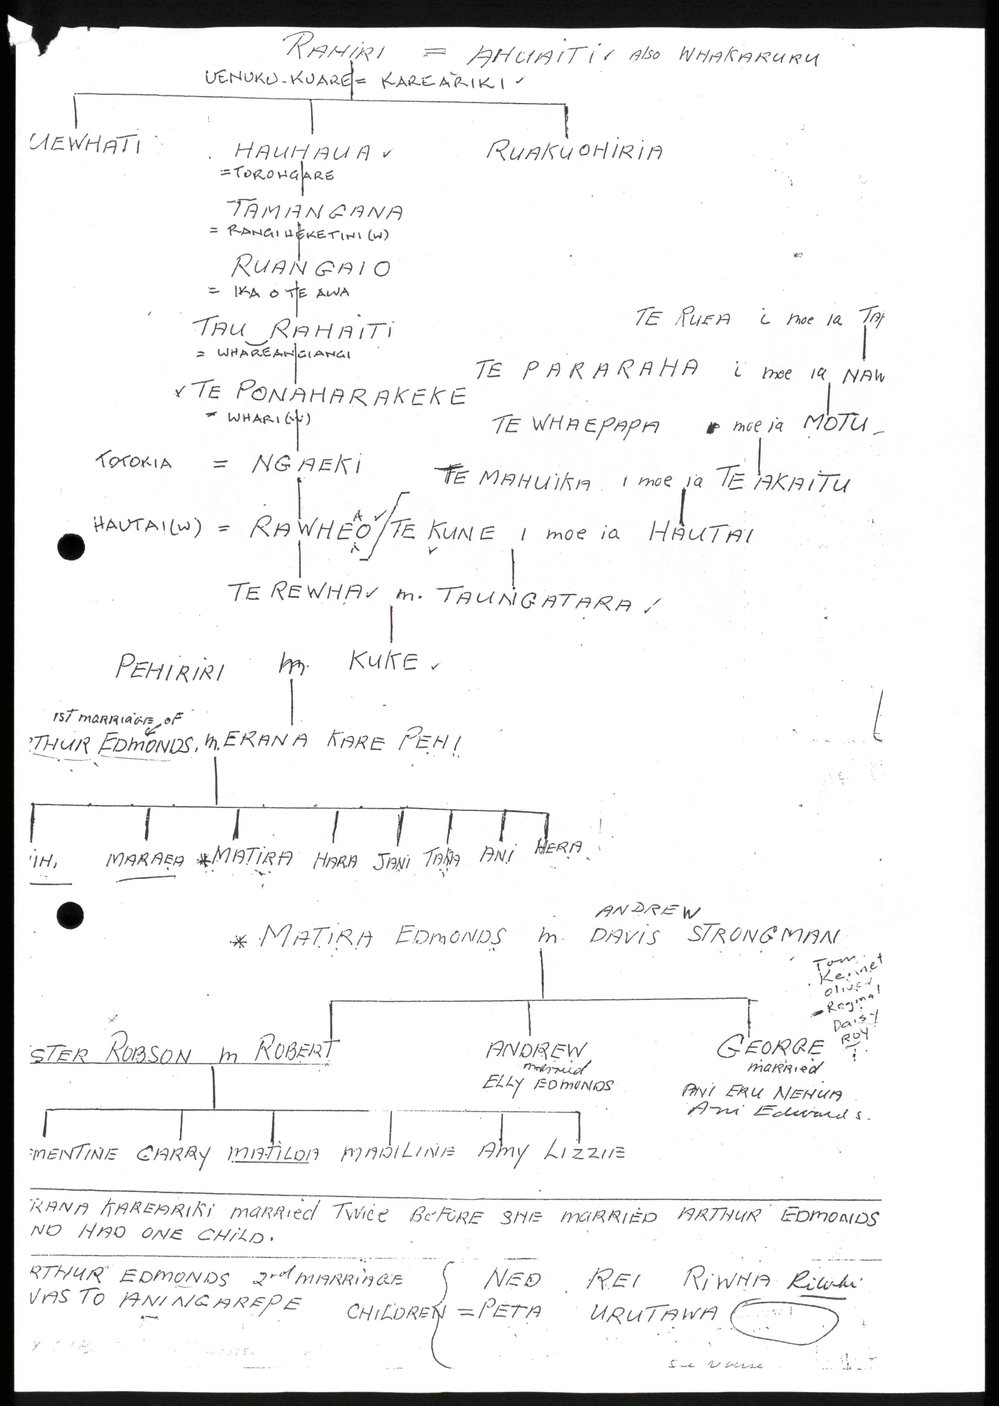 RAHIRI = AHUAITI ✓ also WHAKARURU
UENUKU-KUARE = KAREARIKI ✓
UEWHATI HAUHAUA ✓ RUAKUOHIRIA
= TORONGARE
TAMANGANA
= RANGIHEKETINI (W)
RUANGAIO
= IKA O TE AWA
TAU RAHAITI TE RUEA i moe ia
= WHAREANGIANGI
TE PARARAHA i moe ia NAW
✓ TE PONAHARAKEKE
= WHARI (W)
TE WHAEPAPA moe ia MOTU
TOTOKIA = NGAEKI
TE MAHUIKA i moe ia TE AKAITU
HAUTAI (W) = RAWHEO ✓ / TE KUNE i moe ia HAUTAI
A
TE REWHA ✓ m. TAUNGATARA ✓
PEHIRIRI m. KUKE ✓
1ST MARRIAGE OF
THUR EDMONDS. m. ERANA KARE PEHI
IHI MARAEA *MATIRA HARA JANI TANA ANI HERA
ANDREW
* MATIRA EDMONDS m. DAVIS STRONGMAN
Tom
Kennet
Oliver
Reginal
Daisy
ROY
STER ROBSON m ROBERT ANDREW GEORGE
married married
ELLY EDMONDS ANI ERU NEHUA
Ani Edwards.
MENTINE CARRY MATILDA MADILINE AMY LIZZIE
RANA KAREARIKI married Twice BEFORE SHE MARRIED ARTHUR EDMONDS
ND HAD ONE CHILD.
RTHUR EDMONDS 2nd MARRIAGE NED REI RIWHA Riwhi
VAS TO ANI NGAREPE CHILDREN = PETA URUTAWA